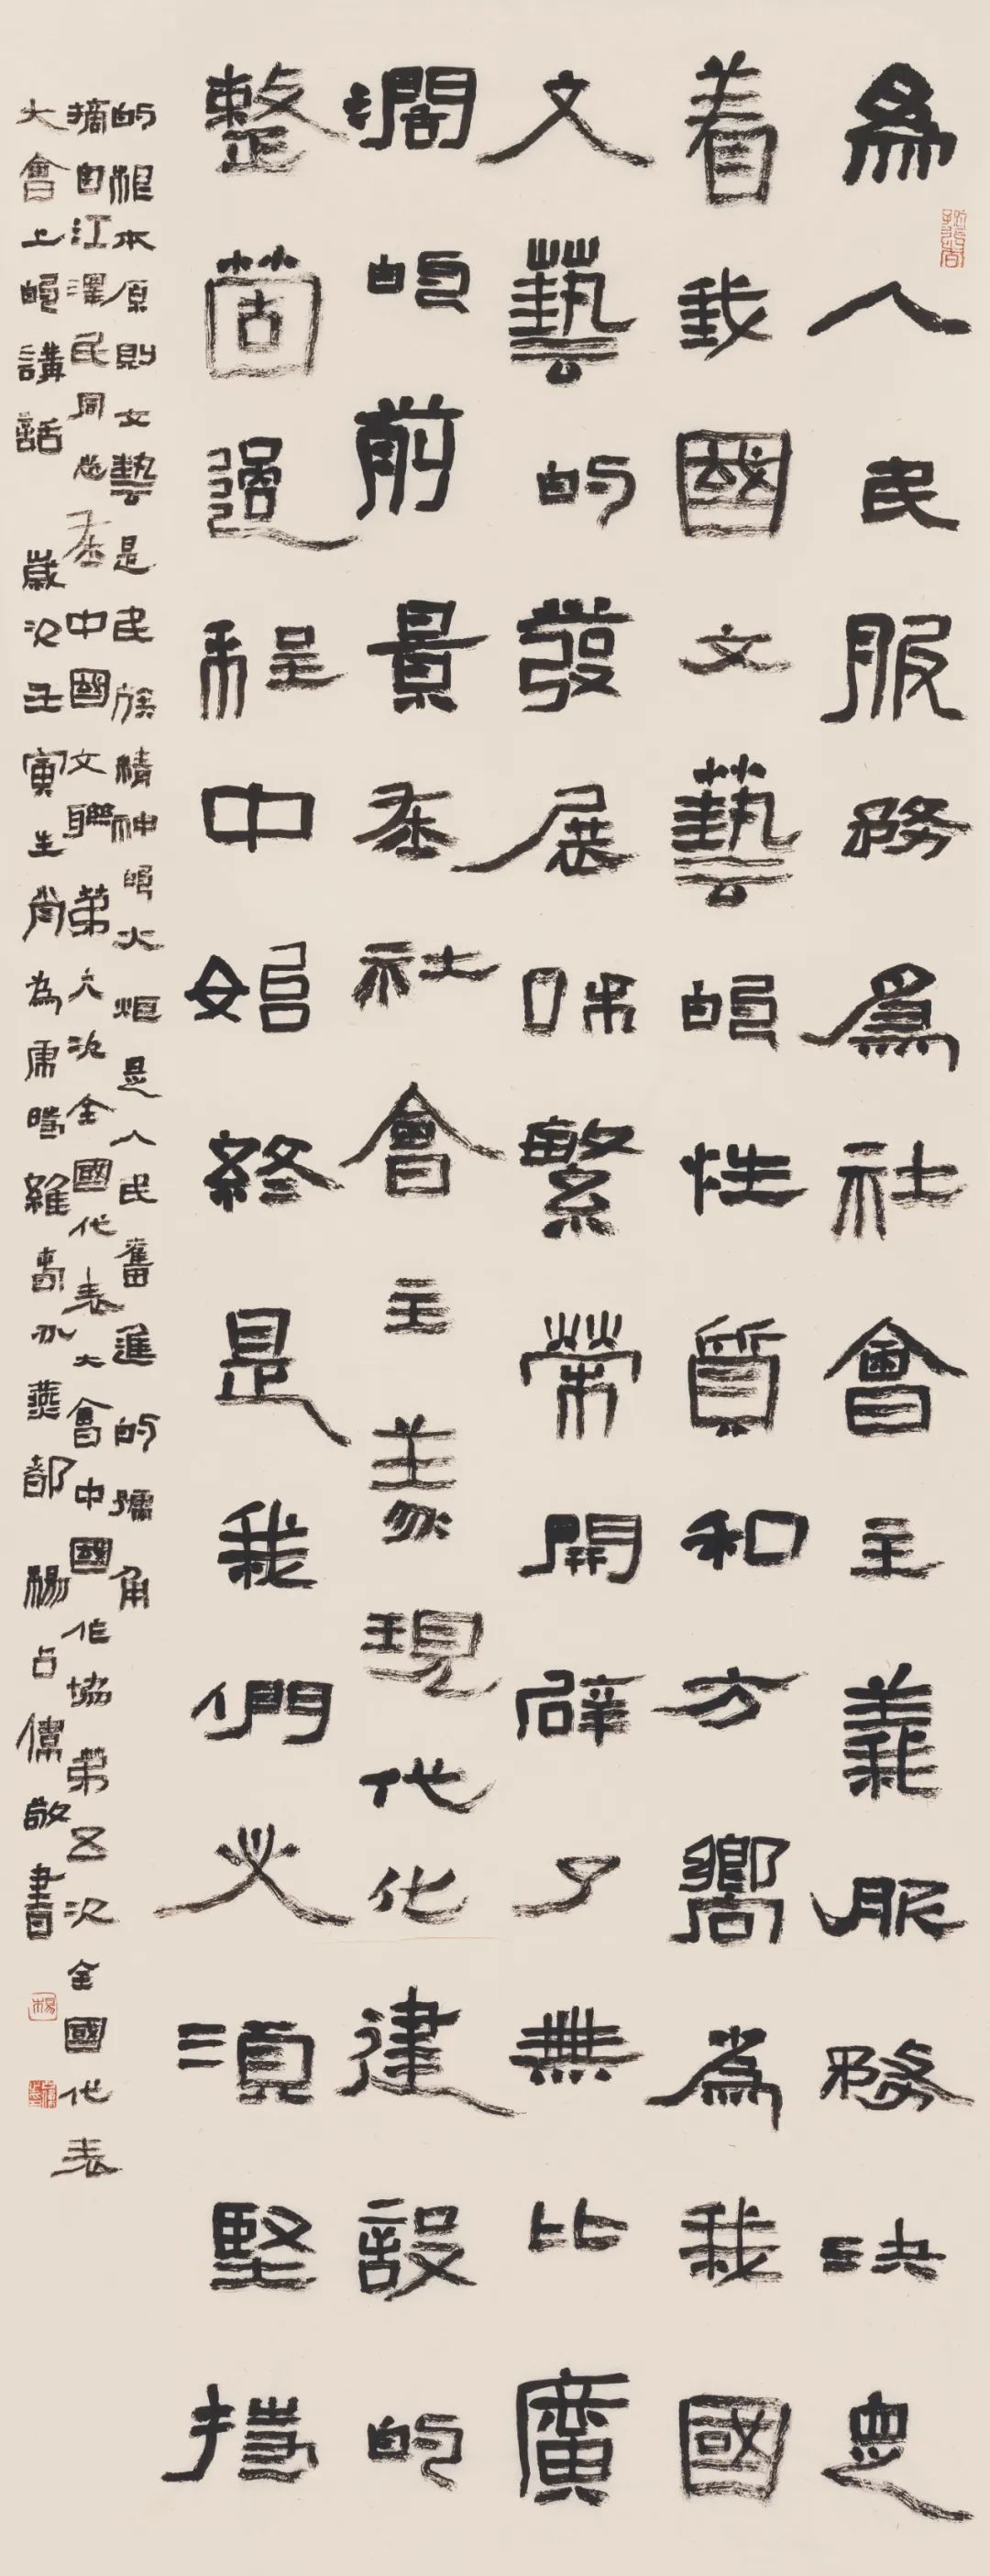 為人民服務為社會主義服務決定
着我國文藝的性質和方嚮為我國
文藝的發展咊繁榮開闢了無比廣
濶的前景在社會主義現代化建設的
整箇過程中始終是我們必須堅持
的根本原則文藝是民族精神的火炬是人民奮進的號角
摘自江澤民同志在中國文聯第六次全國代表大會中國作協第五次全國代表
大會上的講話 歲次壬寅生肖為虎時維燕都楊占儒敬書